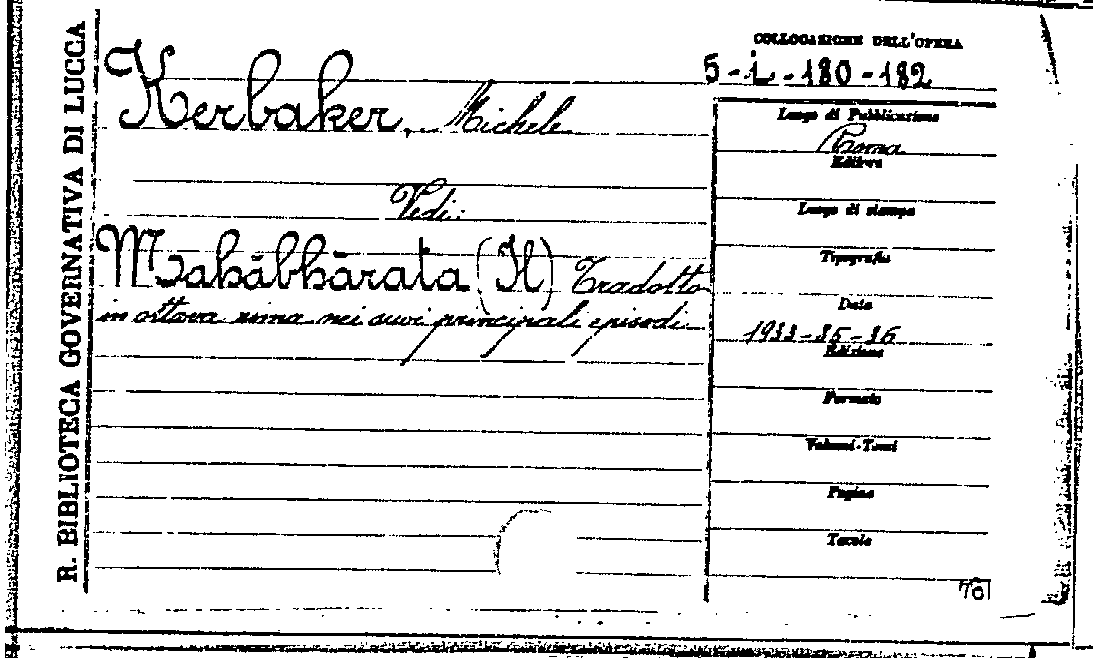 R. BIBLIOTECA GOVERNATIVA DI LUCCA
Kerbaker, Michele
Vedi:
Mahābhārata (Il) Tradotto
in ottava rima nei suoi principali episodi.
COLLOCAZIONE DELL'OPERA
5-L-180-182
Luogo di Pubblicazione
Roma
Editore
Luogo di stampa
Tipografia
Data
1933-35-36
Edizione
Formato
Volumi-Tomi
Pagine
Tavole